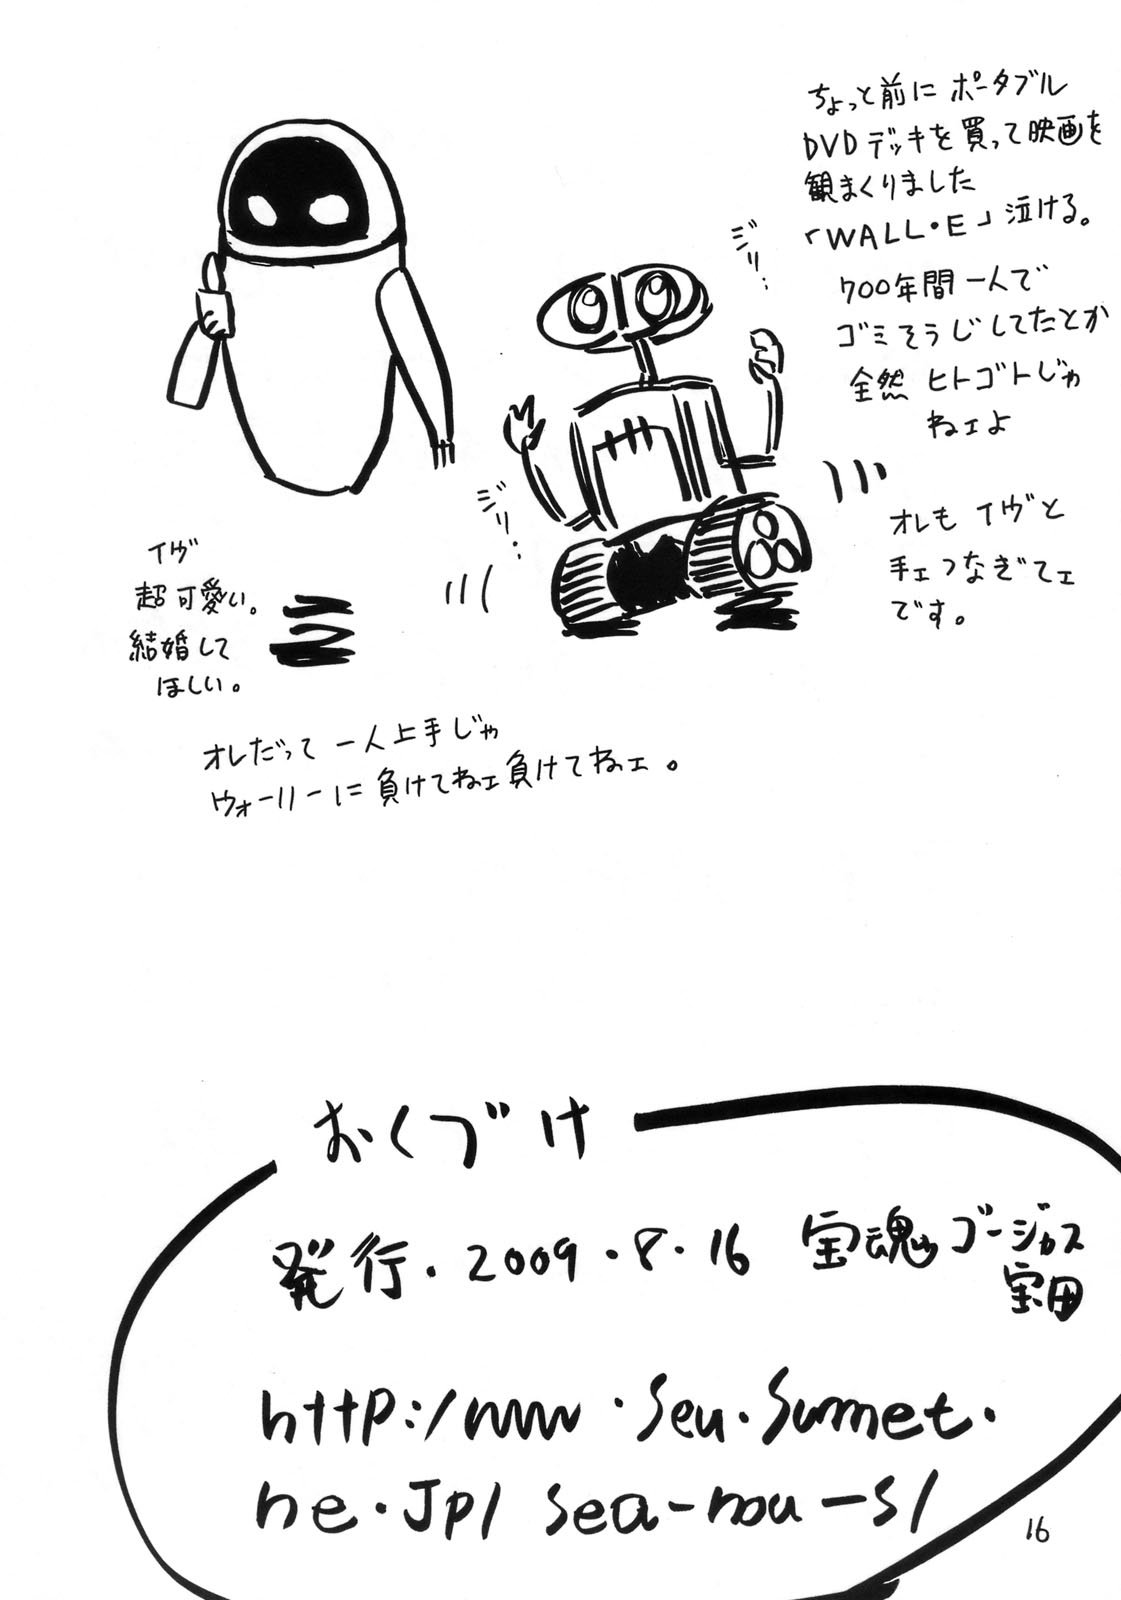 ちょっと前に ポータブル
DVDデッキを買って映画を
観まくりました
「WALL・E」泣ける。
700年間一人で
ゴミそうじしてたとか
全然 ヒトゴトじゃ
ねェよ
ジリ・・
オレも イヴと
手ェつなぎてェ
です。
ジリ・・
イヴ
超可愛い。
結婚して
ほしい。
オレだって 一人上手じゃ
ウォーリーに負けてねェ負けてねェ。
おくづけ
発行・2009・8・16 宝魂 ゴージャス
宝田
ne.jp/sea-nou-s/
16